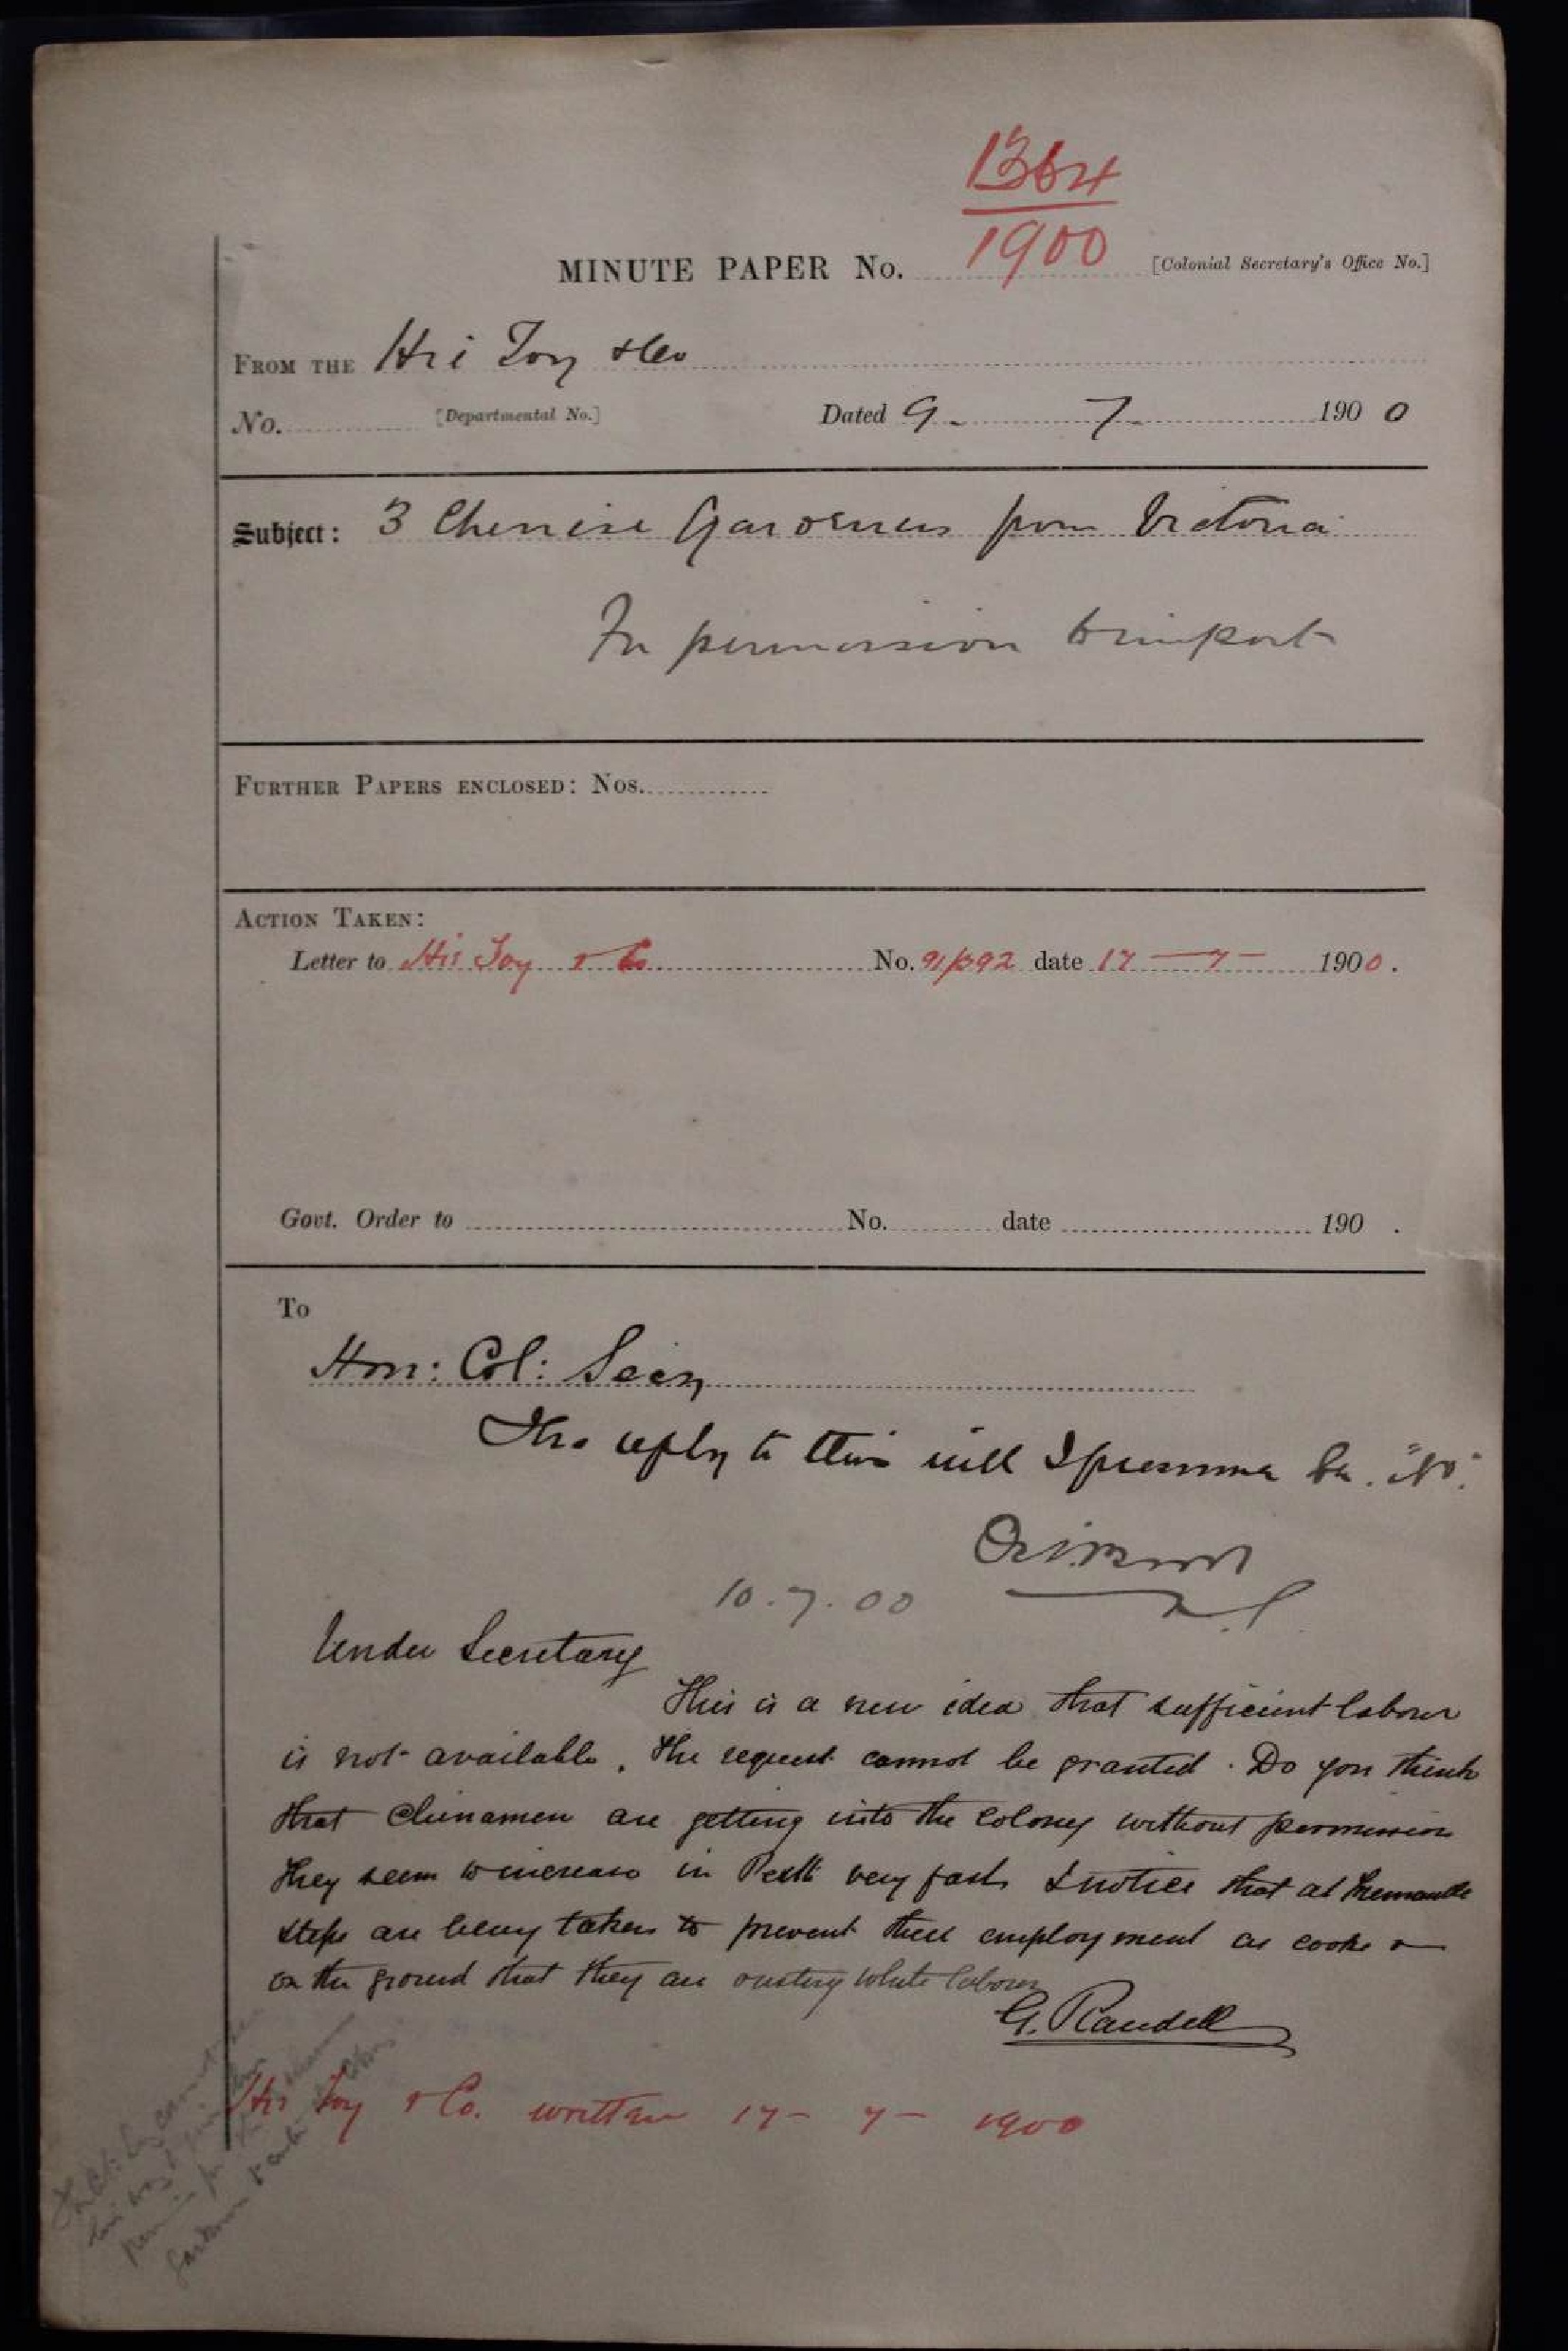 1364
1900
MINUTE PAPER No. [Colonial Secretary's Office No.]
FROM THE Hri Toy & Co
No. [Departmental No.] Dated 9. 7. 1900
Subject: 3 Chenise Gardeners from Victoria
For permission to import
FURTHER PAPERS ENCLOSED: Nos.
ACTION TAKEN:
Letter to His Toy & Co. No. 91/392 date 17 — 7 — 1900.
Govt. Order to No. date 190 .
To
Hon: Col: Secy
The reply to this will I presume be "No".
10.7.00
Under Secretary
This is a new idea that sufficient labour
is not available. The request cannot be granted. Do you think
that Chinamen are getting into the Colony without permission
They seem to increase in Perth very fast. I notice that at Fremantle
steps are being taken to prevent their employment as cooks &
on the ground that they are ousting white labour
G. Randell
His Toy & Co. written 17 - 7 - 1900